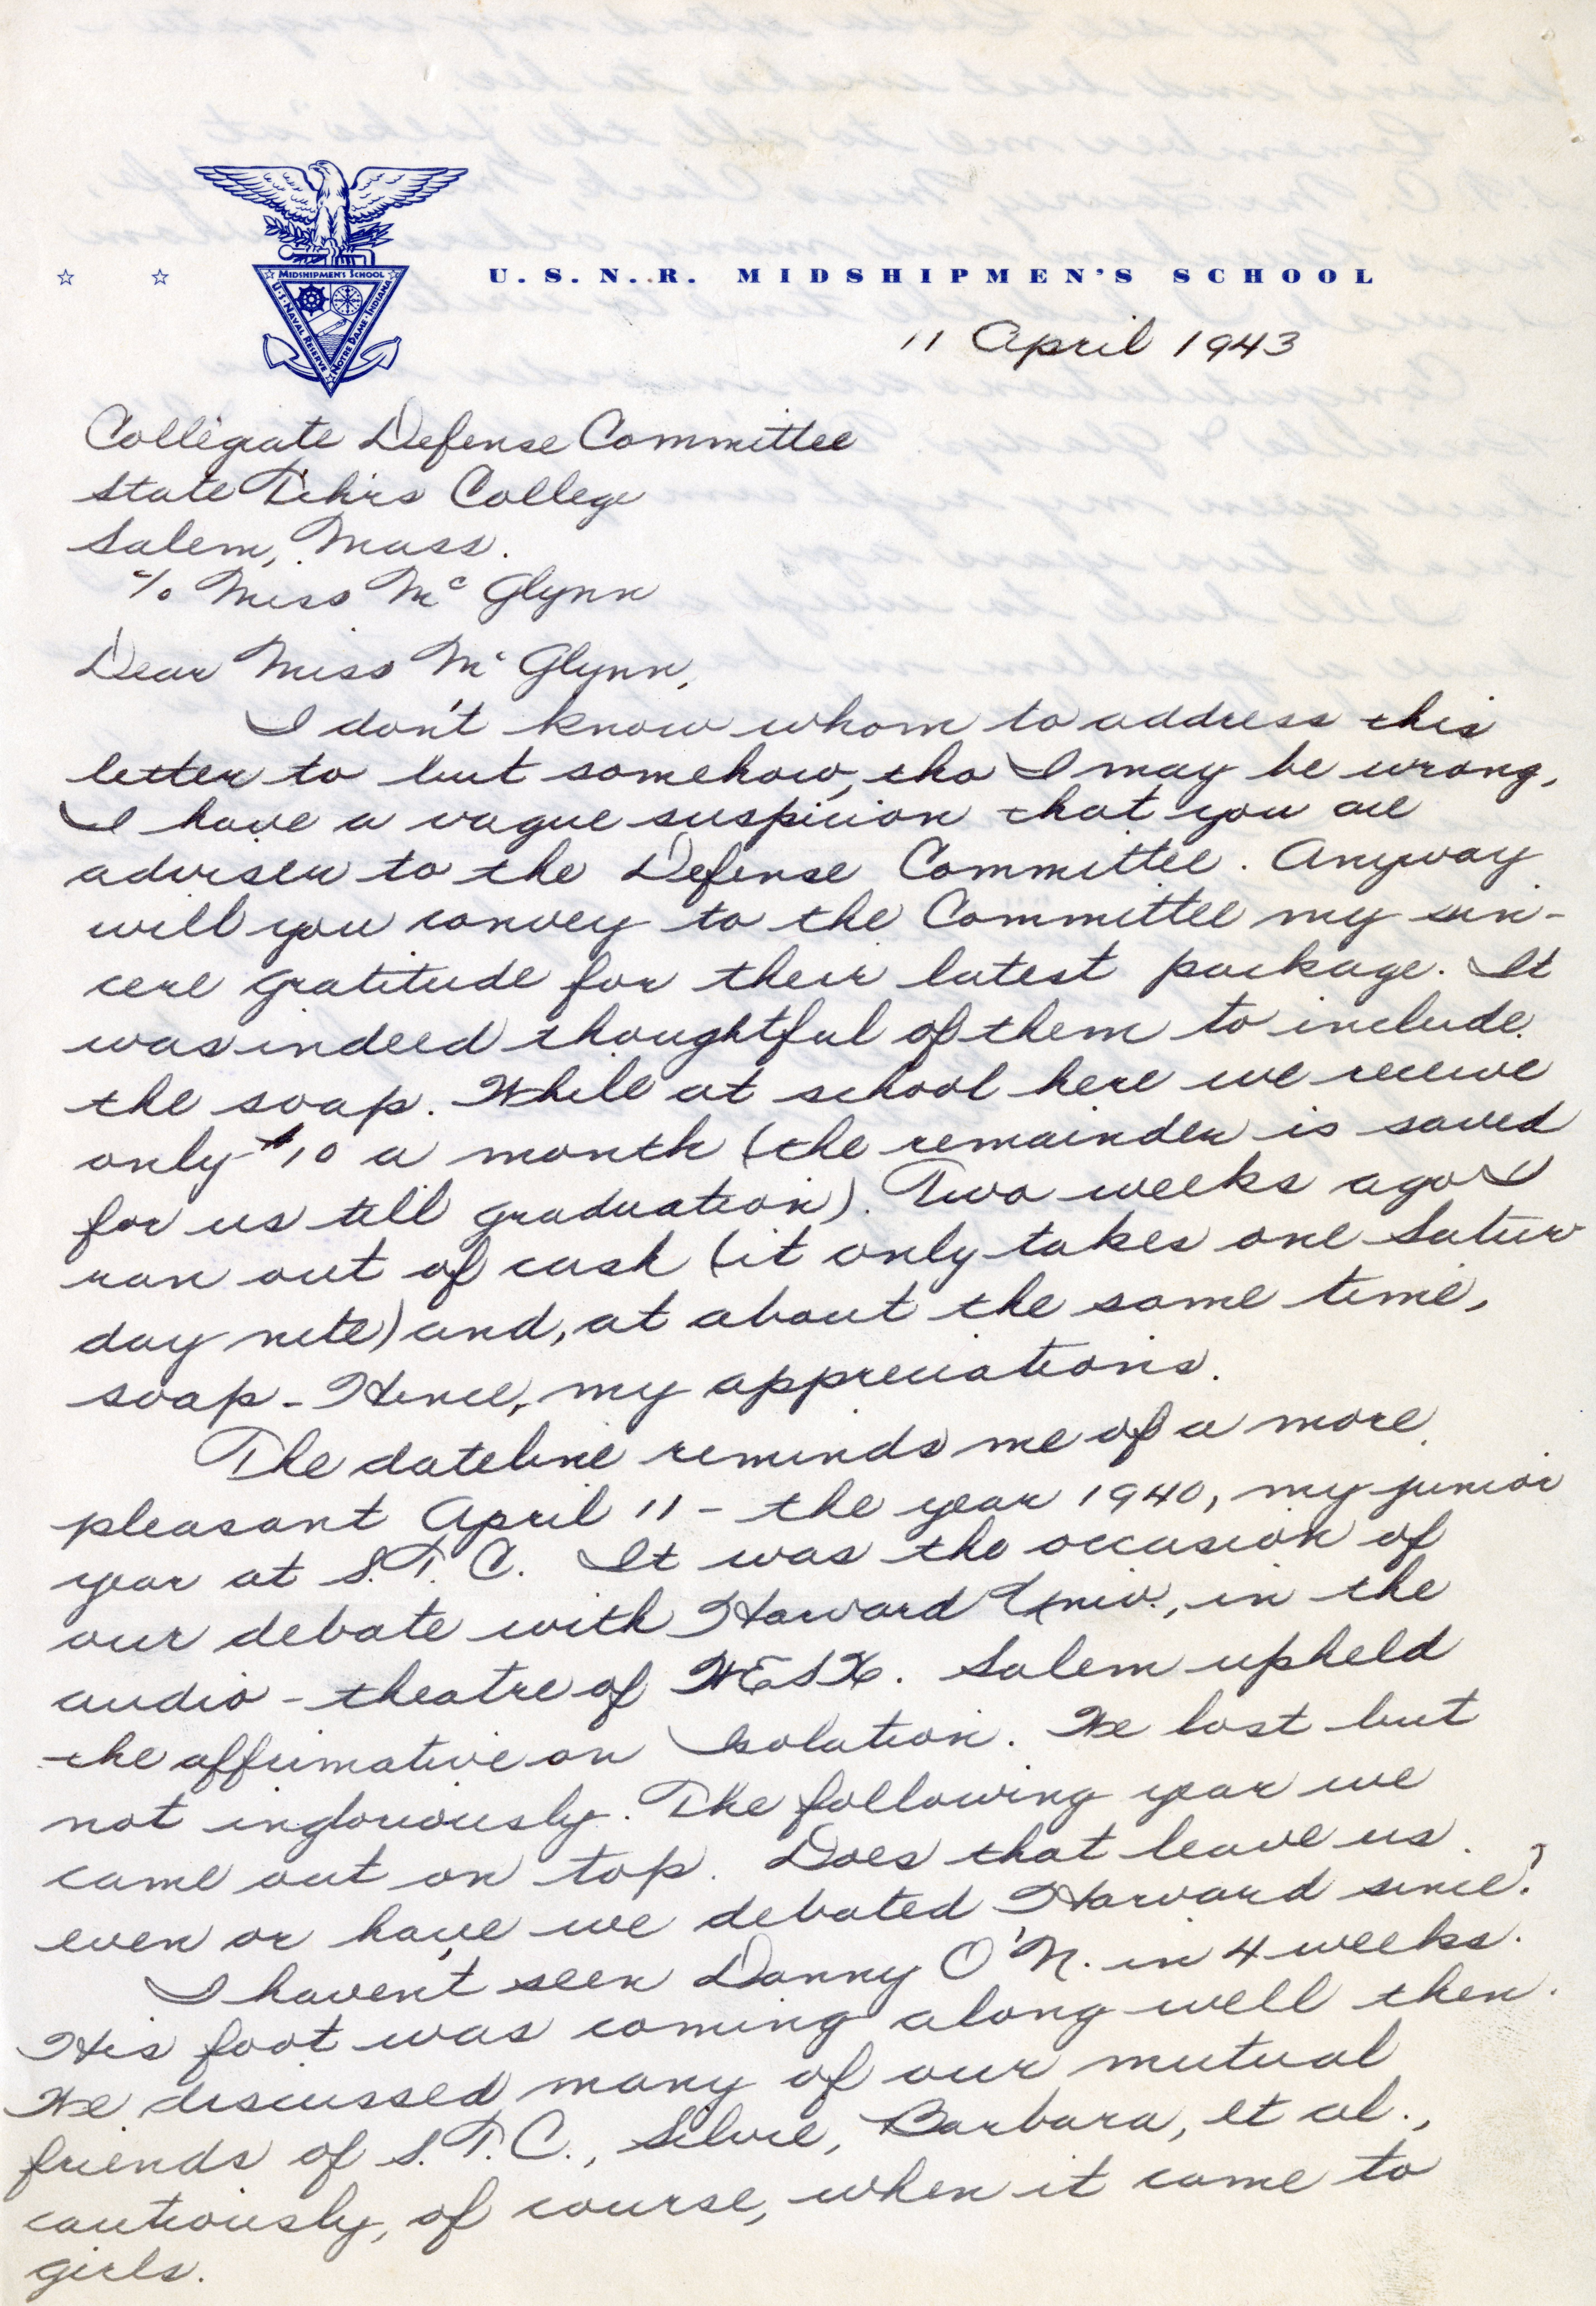 U.S.N.R. MIDSHIPMEN'S SCHOOL
MIDSHIPMEN'S SCHOOL
U·S·NAVAL RESERVE
NOTRE DAME·INDIANA
11 April 1943
Collegiate Defense Committee
State Tchrs College
Salem, Mass.
c/o Miss McGlynn
Dear Miss McGlynn,
I don't know whom to address this
letter to but somehow, tho I may be wrong,
I have a vague suspicion that you are
adviser to the Defense Committee. Anyway
will you convey to the Committee my sin-
cere gratitude for their latest package. It
was indeed thoughtful of them to include
the soap. While at school here we receive
only $10 a month (the remainder is saved
for us till graduation). Two weeks ago I
ran out of cash (it only takes one Satur-
day nite) and, at about the same time,
soap - Hence, my appreciations.
The dateline reminds me of a more
pleasant April 11 - the year 1940, my junior
year at S.T.C. It was the occasion of
our debate with Harvard Univ., in the
audio-theatre of WESX. Salem upheld
the affirmative on Isolation. We lost but
not ingloriously. The following year we
came out on top. Does that leave us
even or have we debated Harvard since?
I haven't seen Danny O'N. in 4 weeks.
His foot was coming along well then.
We discussed many of our mutual
friends of S.T.C., Silvie, Barbara, et al.,
cautiously, of course, when it came to
girls.